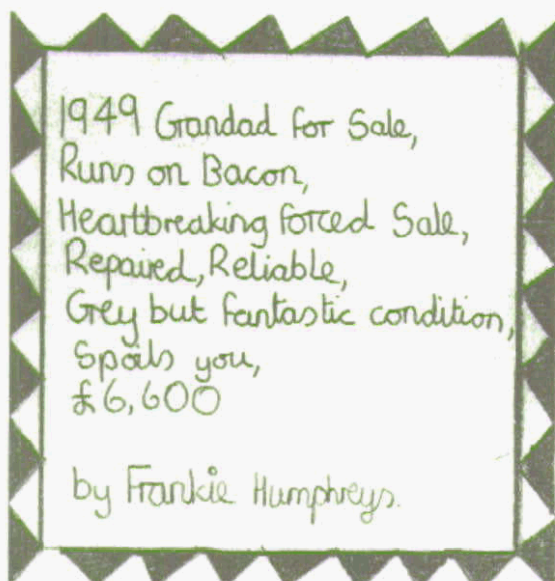 1949 Grandad for Sale,
Runs on Bacon,
Heartbreaking forced Sale,
Repaired, Reliable,
Grey but fantastic condition,
Spoils you,
£6,600
by Frankie Humphreys.